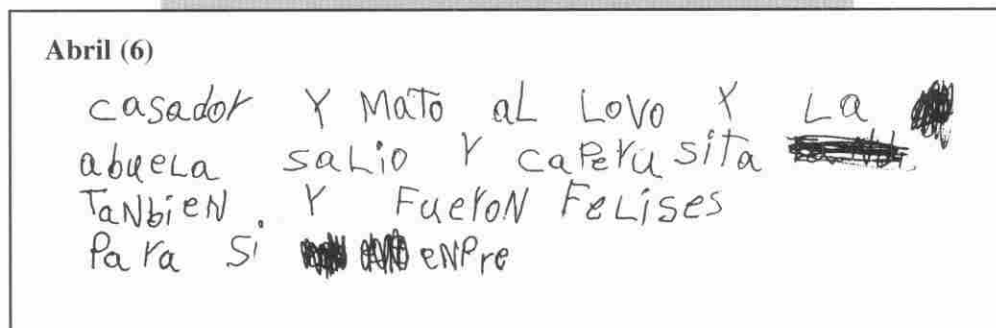 Abril (6)
casador Y MaTo aL Lovo Y La
abueLa saLio Y caPeru sita
TaNbieN. Y FueroN FeLises
Para Si eNPre